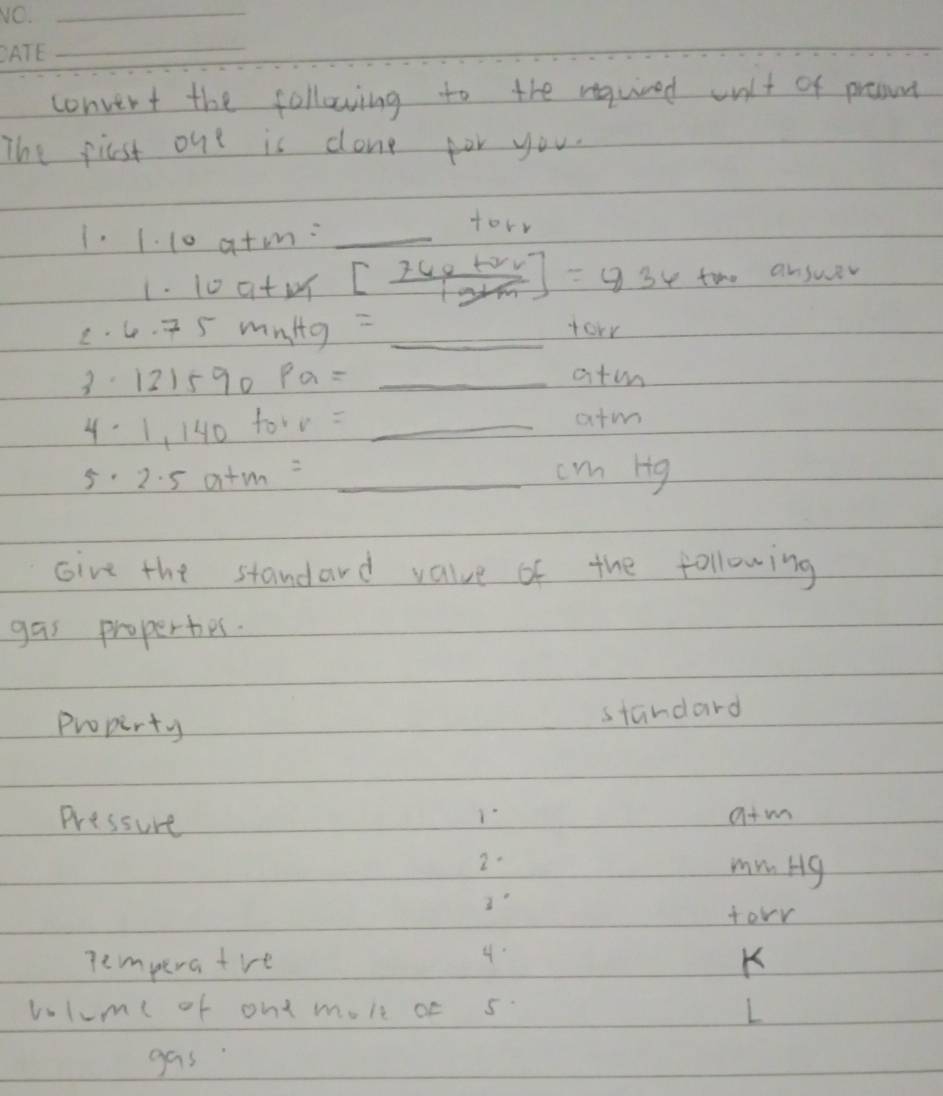 NO.
DATE
convert the following to the required unit of
The first one is done for you.
1. 1.10 atm = ____ torr
1.10 atm [760 torr / 1 atm] = 836 answer
2. 6.75 mmHg = ____ torr
3. 121590 Pa = ____ atm
4. 1,140 torr = ____ atm
5. 2.5 atm = ____ cm Hg
Give the standard value of the following
gas properties.
Property standard
Pressure 1. atm
2. mm Hg
3. torr
Temperature 4. K
volume of one mole of 5. L
gas.